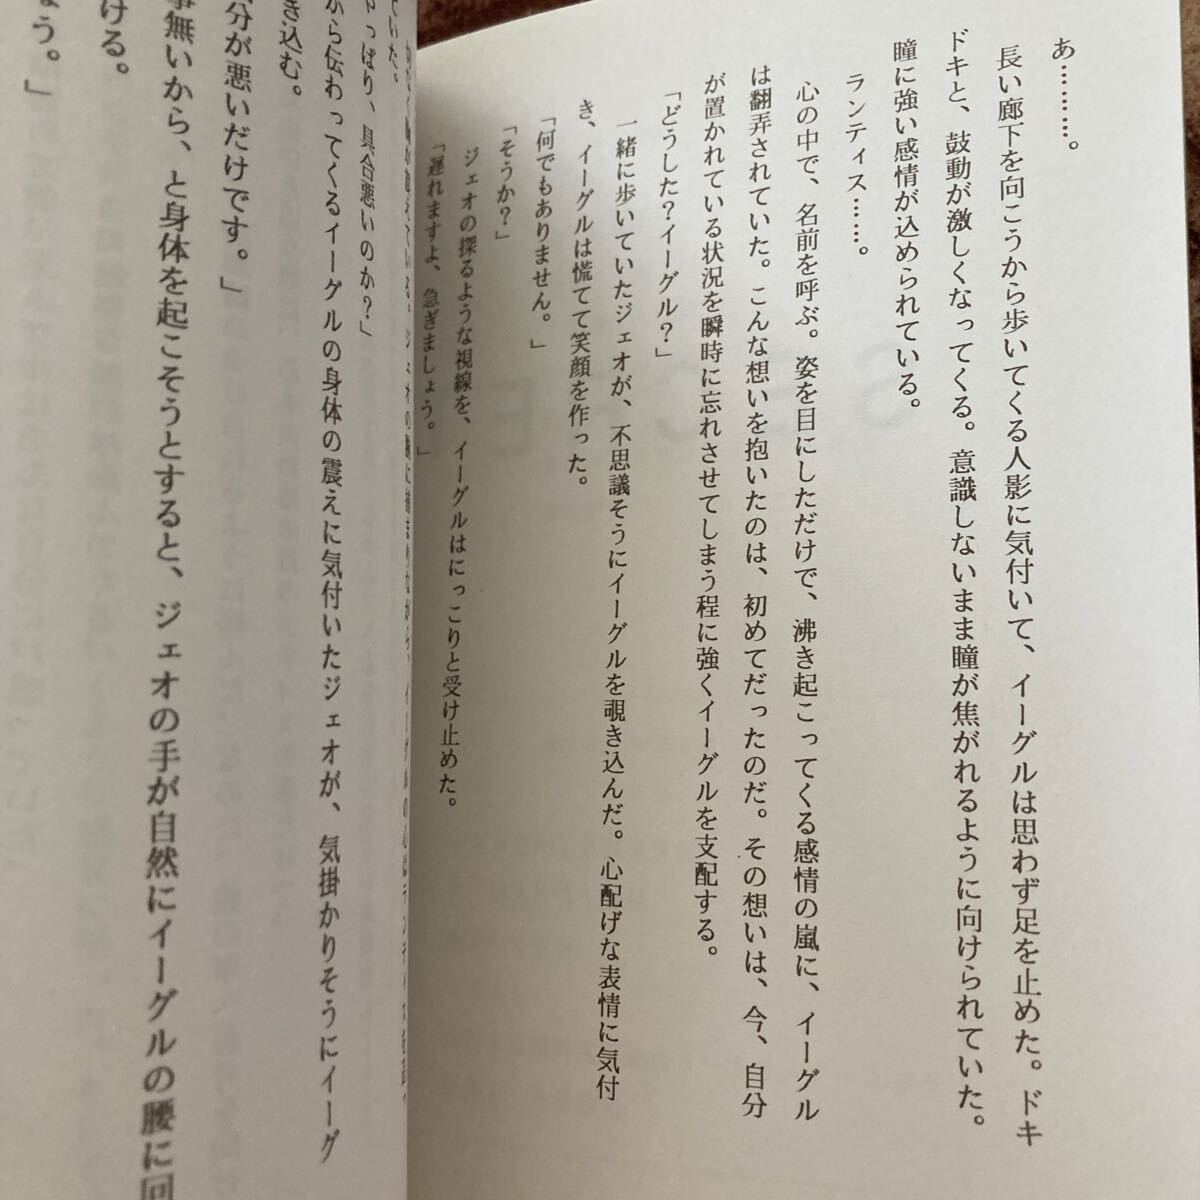 あ………。
長い廊下を向こうから歩いてくる人影に気付いて、イーグルは思わず足を止めた。ドキ
ドキと、鼓動が激しくなってくる。意識しないまま瞳が焦がれるように向けられていた。
瞳に強い感情が込められている。
ランティス……。
心の中で、名前を呼ぶ。姿を目にしただけで、沸き起こってくる感情の嵐に、イーグル
は翻弄されていた。こんな想いを抱いたのは、初めてだったのだ。その想いは、今、自分
が置かれている状況を瞬時に忘れさせてしまう程に強くイーグルを支配する。
「どうした?イーグル?」
一緒に歩いていたジェオが、不思議そうにイーグルを覗き込んだ。心配げな表情に気付
き、イーグルは慌てて笑顔を作った。
「何でもありません。」
「そうか?」
ジェオの探るような視線を、イーグルはにっこりと受け止めた。
「遅れますよ、急ぎましょう。」
ていた。
やっぱり、具合悪いのか?」
から伝わってくるイーグルの身体の震えに気付いたジェオが、気掛かりそうにイーグ
き込む。
分が悪いだけです。」
事無いから、と身体を起こそうとすると、ジェオの手が自然にイーグルの腰に回
ける。
ょう。」